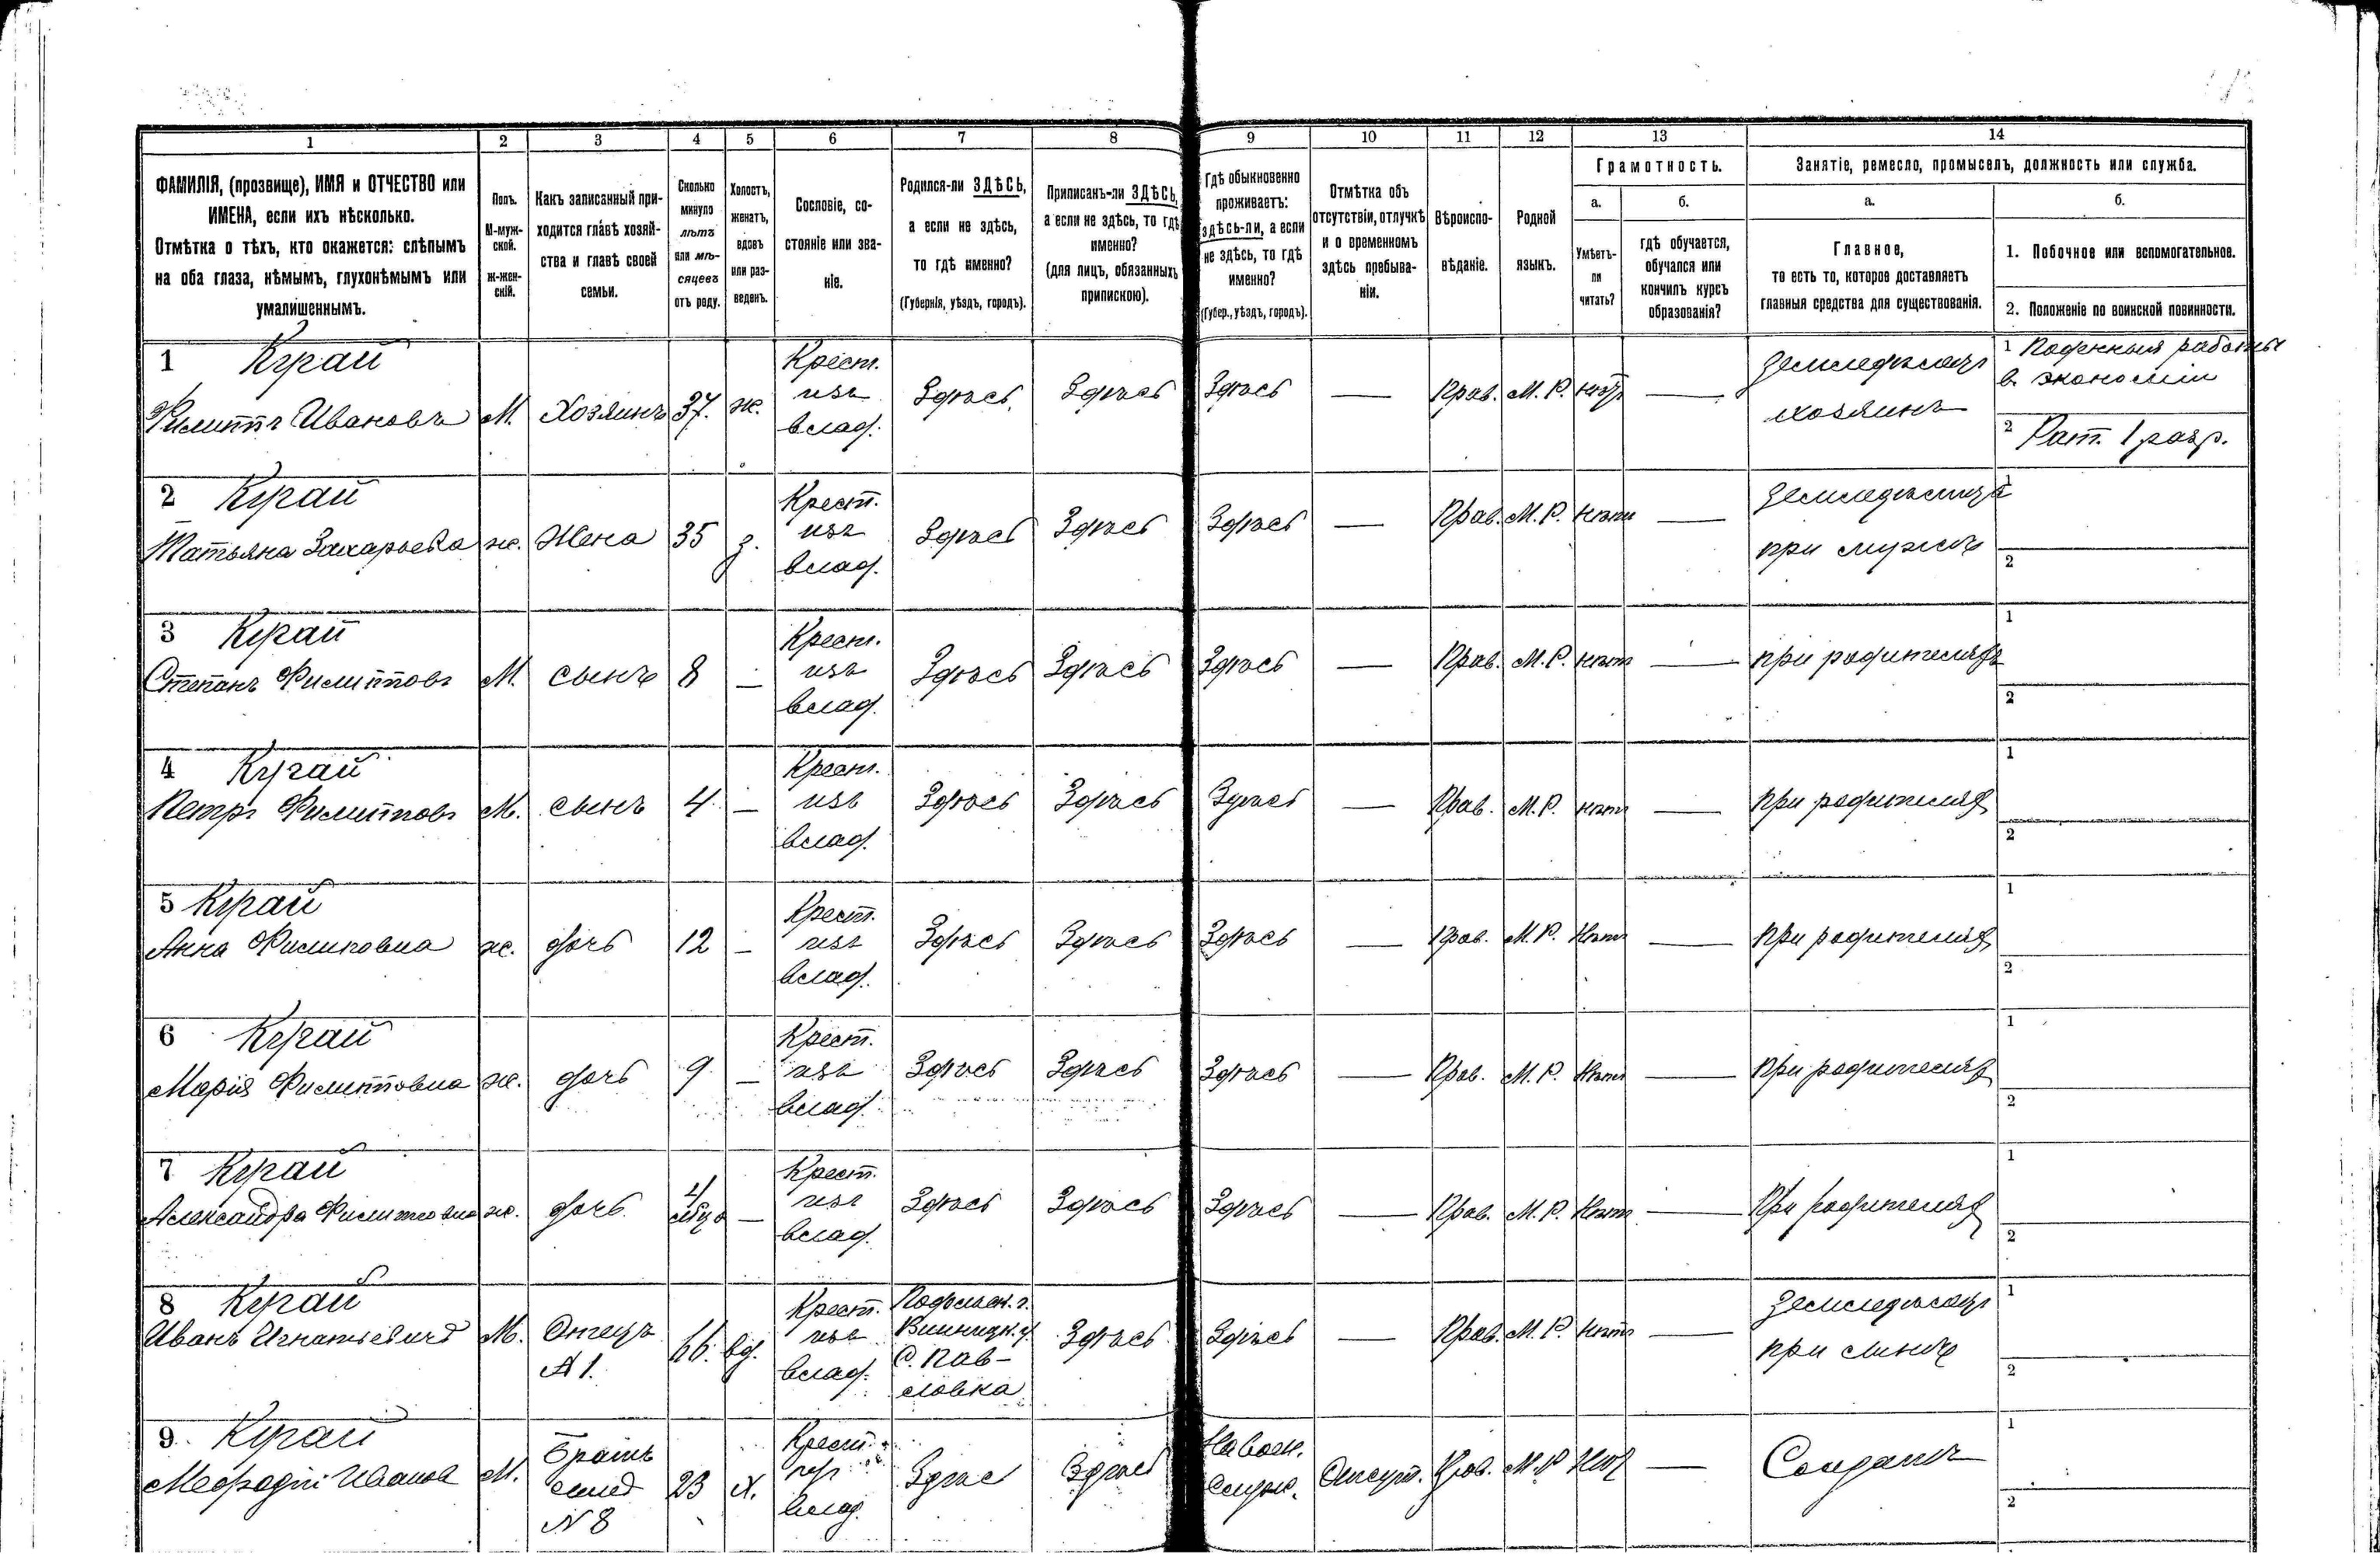 1 2 3 4 5 6 7 8 9 10 11 12 13 14
ФАМИЛІЯ, (прозвище), ИМЯ и ОТЧЕСТВО или
ИМЕНА, если ихъ нѣсколько.
Отмѣтка о тѣхъ, кто окажется: слѣпымъ
на оба глаза, нѣмымъ, глухонѣмымъ или
умалишеннымъ.
Полъ.
М-муж-
ской.
ж-жен-
скій.
Какъ записанный при-
ходится главѣ хозяй-
ства и главѣ своей
семьи.
Сколько
минуло
лѣтъ
или мѣ-
сяцевъ
отъ роду.
Холостъ,
женатъ,
вдовъ
или раз-
веденъ.
Сословіе, со-
стояніе или зва-
ніе.
Родился-ли ЗДѢСЬ,
а если не здѣсь,
то гдѣ именно?
(Губернія, уѣздъ, городъ).
Приписанъ-ли ЗДѢСЬ,
а если не здѣсь, то гдѣ
именно?
(для лицъ, обязанныхъ
припискою).
Гдѣ обыкновенно
проживаетъ:
здѣсь-ли, а если
не здѣсь, то гдѣ
именно?
(Губер., уѣздъ, городъ).
Отмѣтка объ
отсутствіи, отлучкѣ
и о временномъ
здѣсь пребыва-
ніи.
Вѣроиспо-
вѣданіе.
Родной
языкъ.
Грамотность.
а.
Умѣетъ-
ли
читать?
б.
гдѣ обучается,
обучался или
кончилъ курсъ
образованія?
Занятіе, ремесло, промыселъ, должность или служба.
а.
Главное,
то есть то, которое доставляетъ
главныя средства для существованія.
б.
1. Побочное или вспомогательное.
2. Положеніе по воинской повинности.
1 Кугай
Филиппъ Ивановъ
М.
Хозяинъ
37.
ж.
Крест.
изъ
влад.
Здѣсь
Здѣсь
Здѣсь
—
Прав.
М. Р.
нѣтъ
—
Земледѣлецъ
хозяинъ
1 Поденныя работы
в экономіи
2 Рат. 1 разр.
2 Кугай
Татьяна Захарьева
ж.
Жена
35
з.
Крест.
изъ
влад.
Здѣсь
Здѣсь
Здѣсь
—
Прав.
М. Р.
нѣтъ
—
Земледѣлица
при мужѣ
1
2
3 Кугай
Степанъ Филипповъ
М.
сынъ
8
—
Крест.
изъ
влад.
Здѣсь
Здѣсь
Здѣсь
—
Прав.
М. Р.
нѣтъ
—
при родителяхъ
1
2
4 Кугай
Петръ Филипповъ
М.
сынъ
4
—
Крест.
изъ
влад.
Здѣсь
Здѣсь
Здѣсь
—
Прав.
М. Р.
нѣтъ
—
при родителях
1
2
5 Кугай
Анна Филиповна
ж.
дочь
12
—
Крест.
изъ
влад.
Здѣсь
Здѣсь
Здѣсь
—
Прав.
М. Р.
Нѣтъ
—
при родителях
1
2
6 Кугай
Марія Филипповна
ж.
дочь
9
—
Крест.
изъ
влад.
Здѣсь
Здѣсь
Здѣсь
—
Прав.
М. Р.
Нѣтъ
—
при родителях
1
2
7 Кугай
Александра Филиповна
ж.
дочь
4
—
Крест.
изъ
влад.
Здѣсь
Здѣсь
Здѣсь
—
Прав.
М. Р.
Нѣтъ
—
При родителях
1
2
8 Кугай
Иванъ Игнатьевичъ
М.
Отецъ
№ 1.
66.
вд.
Крест.
изъ
влад.
Подольск. г.
Винницк. у.
С. Пав-
ловка
Здѣсь
Здѣсь
—
Прав.
М. Р.
Нѣтъ
—
Земледѣлецъ
при сынѣ
1
2
9. Кугай
Мефодій Иванов
М.
Братъ
сынъ
№ 8
23
х.
Крест.
влад.
Здѣс
Здѣсь
На воен.
служ.
Отсут.
Прав.
М. Р.
Нѣт
—
Солдатъ
1
2